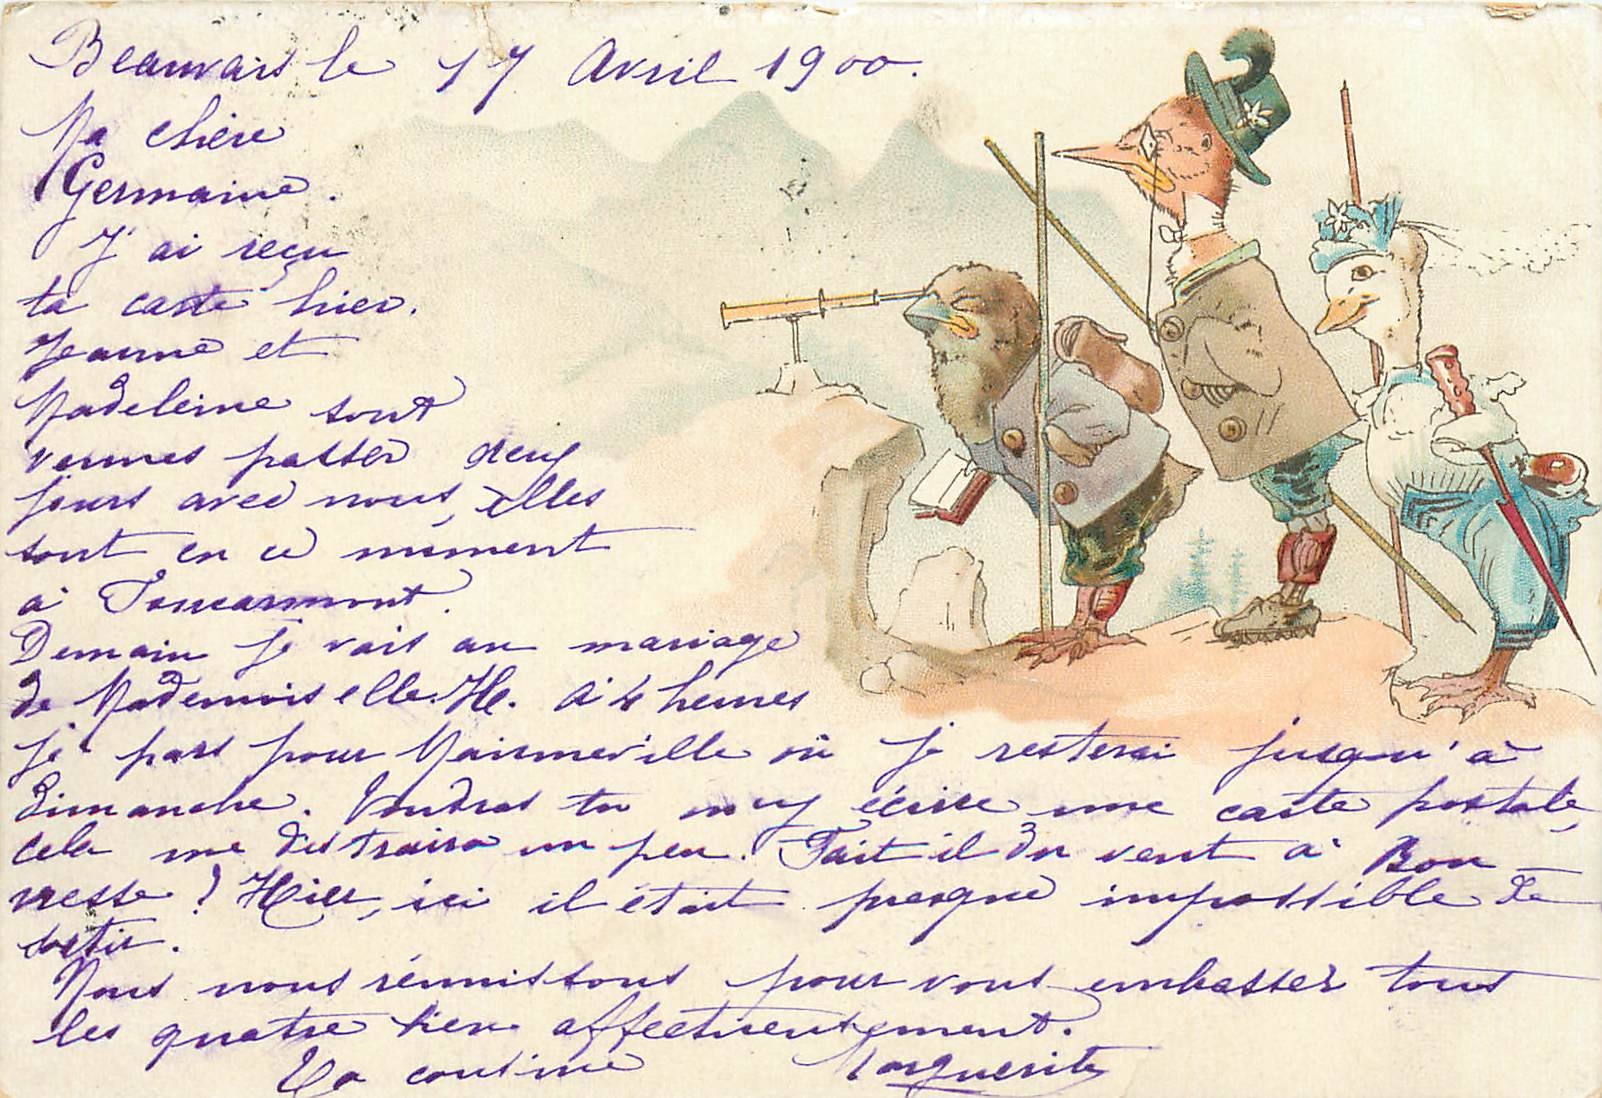 Beauvais le 17 Avril 1900.
Ma chère
Germaine.
J'ai reçu
ta carte hier.
Jeanne et
Madeleine sont
venues passer deux
jours avec nous, elles
sont en ce moment
à Foucarmont.
Demain je vais au mariage
de Mademoiselle. He. à 4 heures
je pars pour où je resterai jusqu'à
Dimanche. Voudras tu m'y écrire une carte postale,
cela me distraira un peu. Fait il du vent à Bon
nesse? Hier, ici il était presque impossible de
sortir.
Nous nous réunissons pour vous embasser tous
les quatre bien affectueusement.
Ta cousine Marguerite